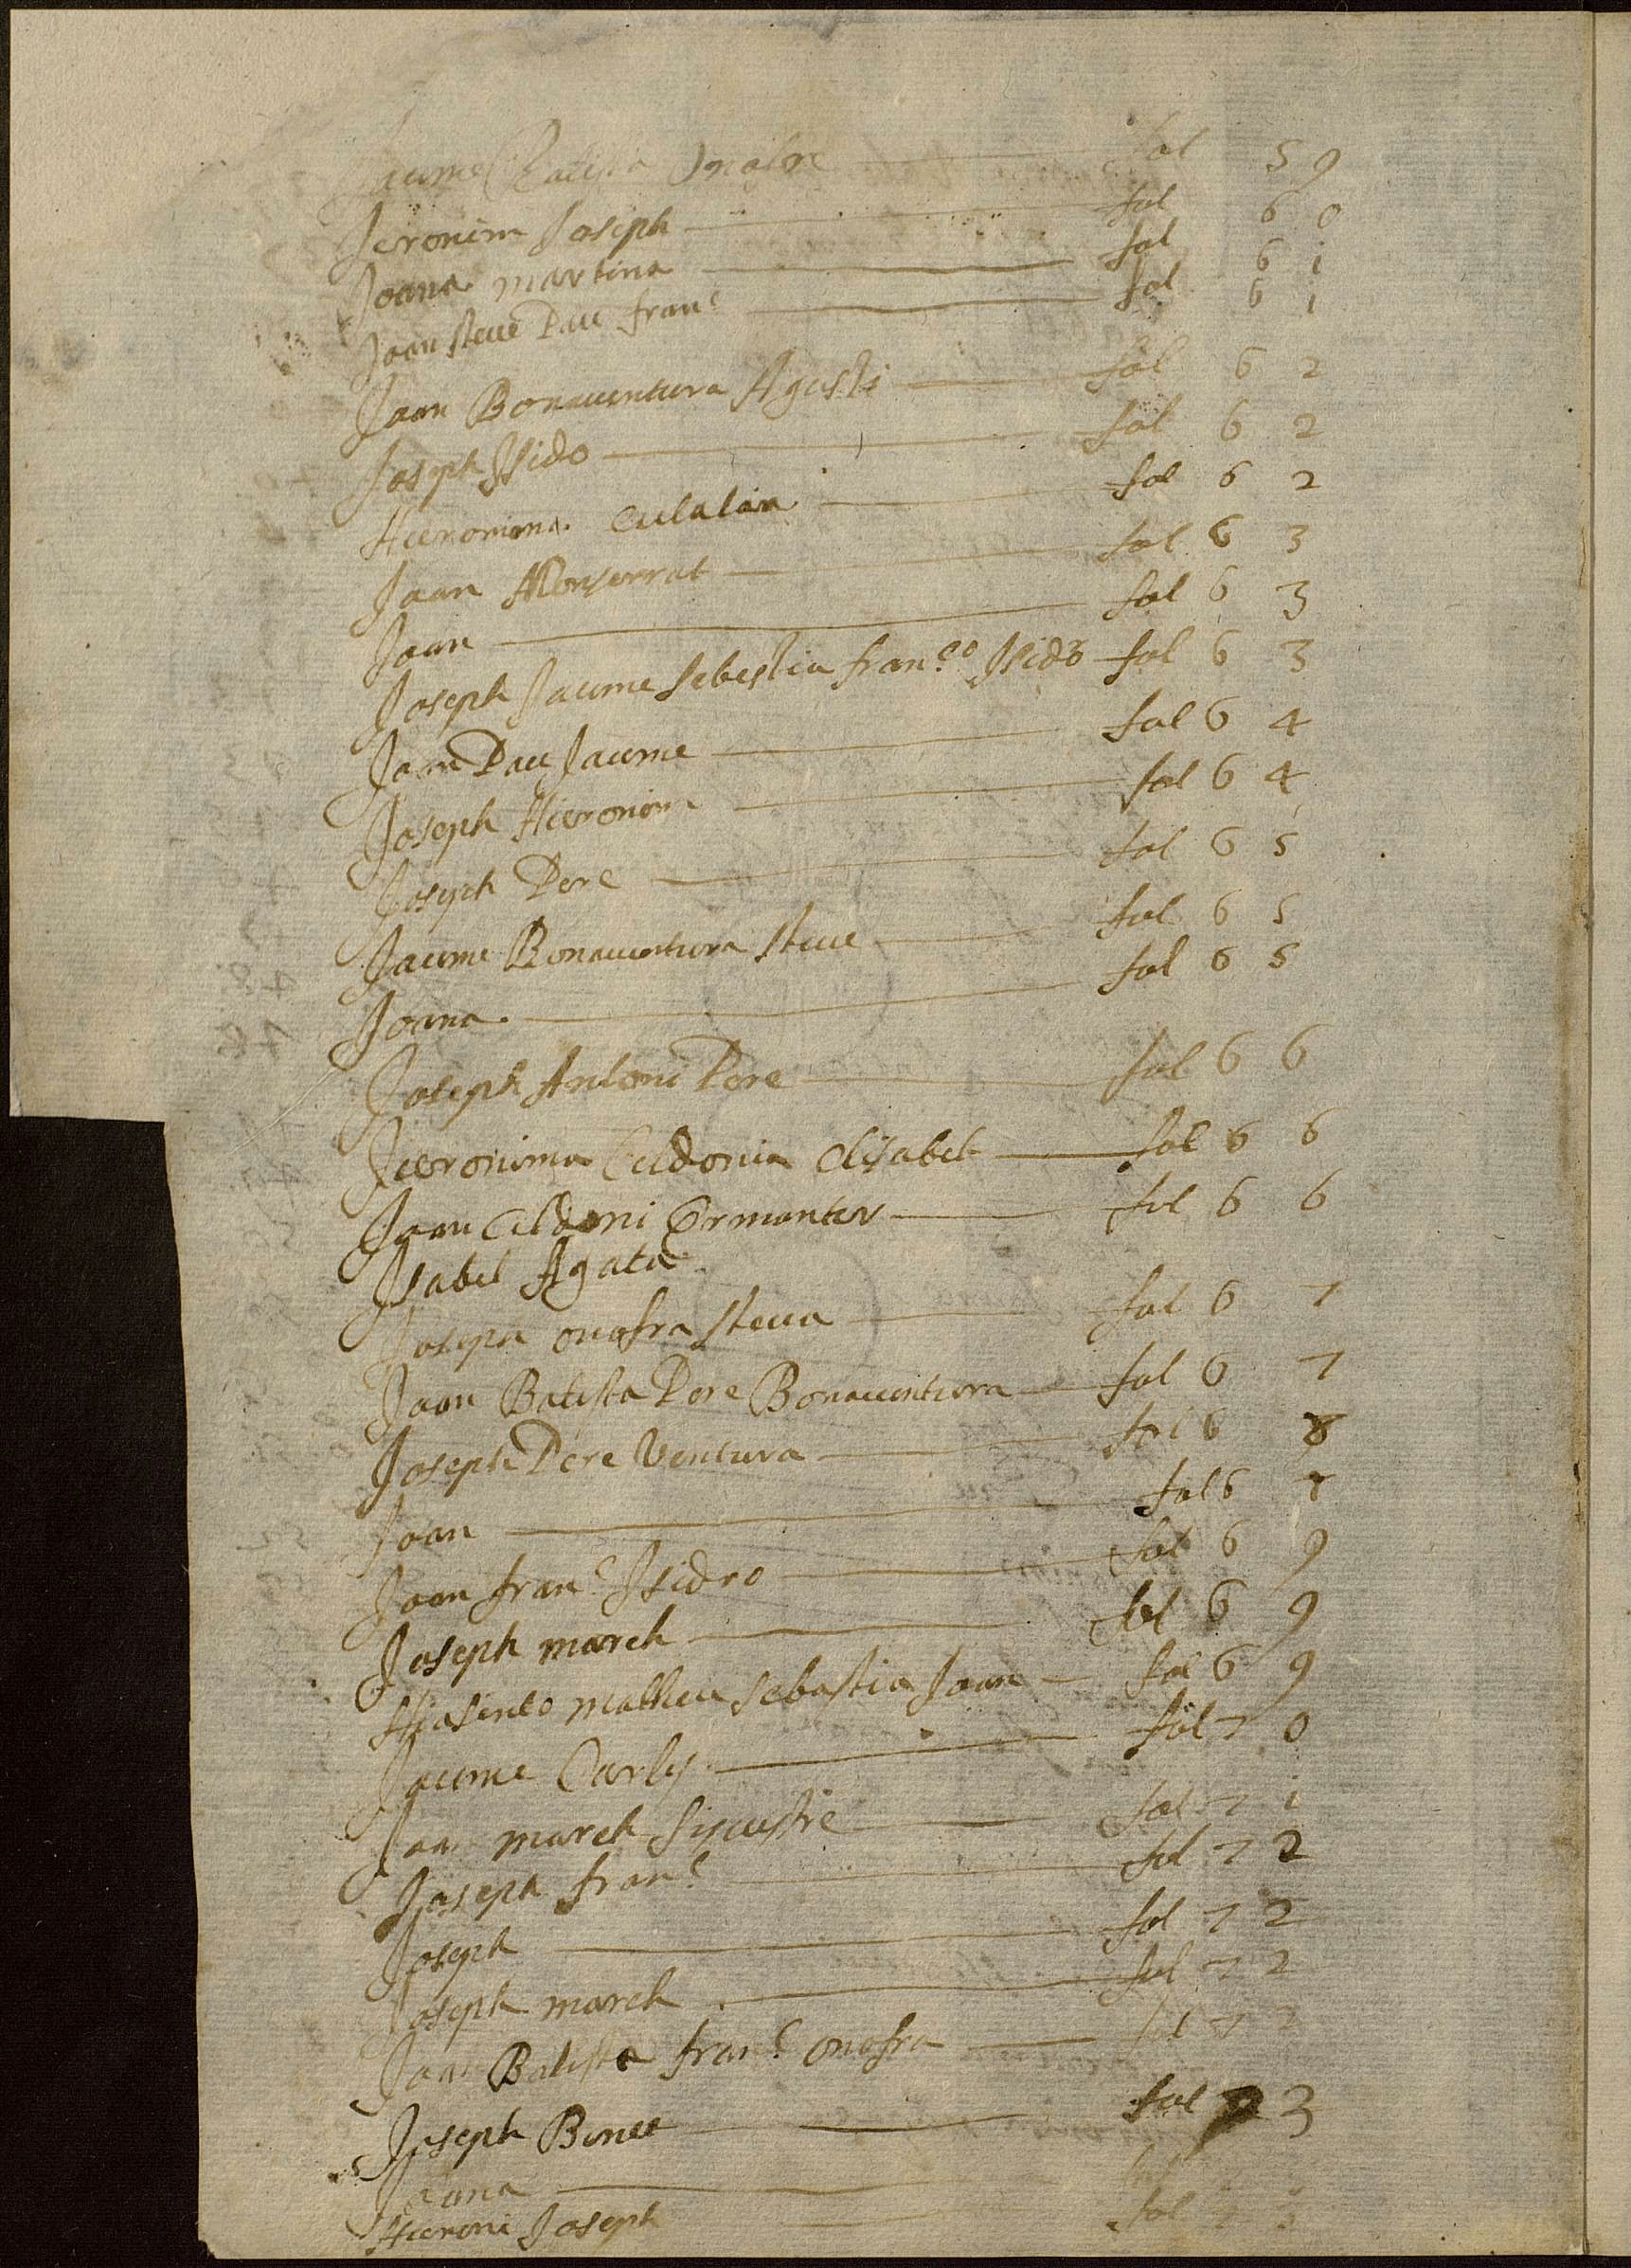 Jaume Batista Onofre fol 59
Jeronim Joseph fol 60
Joana martina fol 61
Joan steue Pau franc fol 61
Joan Bonauentura Agusti fol 62
Joseph Isido fol 62
Hieronima eulalia fol 62
Joan Monserrat fol 63
Joan fol 63
Joseph Jaume sebestia fran.co Isidro fol 63
Joan Pau Jaume fol 64
Joseph Hieronim fol 64
Joseph Pere fol 65
Jaume Bonauentura steue fol 65
Joana fol 65
Joseph Antoni Pere fol 66
Jeronima Celdonia elisabet fol 66
Joan Celdoni Ermanter fol 66
Isabel Agata
Josepa onofra steua fol 67
Joan Batista Pere Bonauentura fol 67
Joseph Pere Ventura fol 68
Joan fol 6
Joan franc Isidro fol 69
Joseph march fol 69
Hiasinto matheu sebastia Joan fol 69
Jaume Carles fol 70
Joan march siluestre fol 71
Josepa franc fol 72
Joseph fol 72
Joseph march fol 72
Joan Batista franc onofra fol 72
Joseph Bonet fol 73
Joana
Hieroni Joseph fol